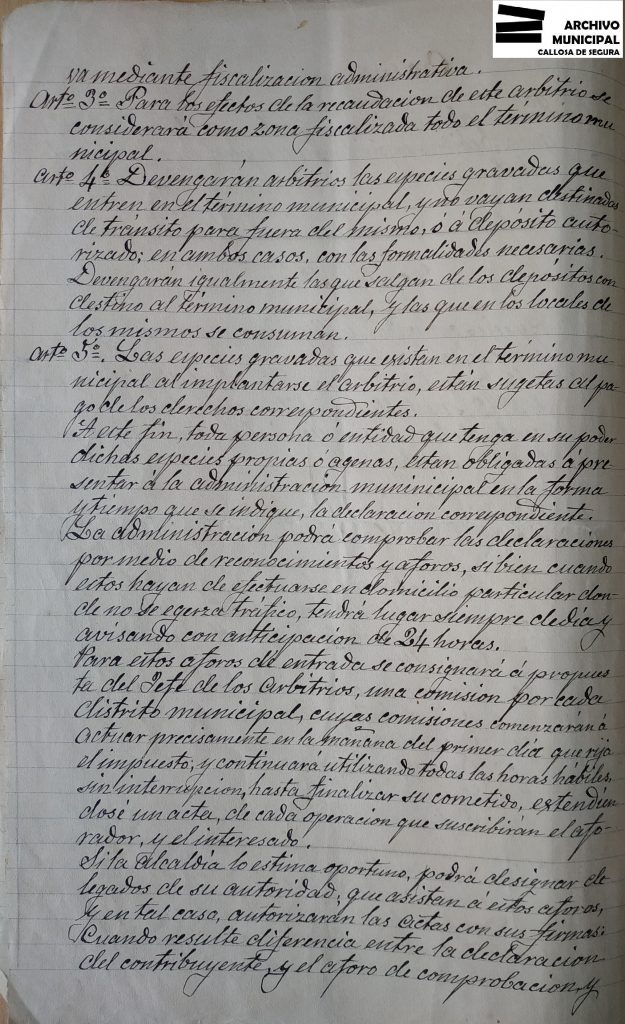 ARCHIVO
MUNICIPAL
CALLOSA DE SEGURA
va mediante fiscalizacion administrativa.
Artº 3º Para los efectos de la recaudacion de este arbitrio se
considerará como zona fiscalizada todo el término mu
nicipal.
Artº 4º Devengarán arbitrios las especies gravadas que
entren en el termino municipal, y no vayan destinadas
de tránsito para fuera del mismo, ó á deposito auto-
rizado; en ambos casos, con las formalidades necesarias.
Devengarán igualmente las que salgan de los depósitos con
destino al término municipal, y las que en los locales de
los mismos se consuman.
Artº 5º. Las especies gravadas que existan en el término mu
nicipal al implantarse el arbitrio, están sugetas al pa-
go de los derchos correspondientes.
A este fin, toda persona ó entidad que tenga en su poder
dichas especies propias ó agenas, estan obligadas á pre
sentar á la administración muninicipal en la forma
y tiempo que se indique, la declaracion correspondiente.
La administración podrá comprobar las declaraciones
por medio de reconocimientos y aforos, si bien cuando
estos hayan de efectuarse en domicilio particular don-
de no se egerza tráfico, tendrá lugar siempre de día y
avisando con anticipacion de 24 horas.
Para estos aforos de entrada se consignará á propues
ta del Jefe de los Arbitrios, una comision por cada
distrito municipal, cuyas comisiones comenzarán á
actuar precisamente en la mañana del primer dia que rija
el impuesto; y continuará utilizando todas las horas hábiles,
sin interrupcion, hasta finalizar su cometido, extendién
dosé un acta, de cada operacion que suscribirán el afo-
rador, y el interesado.
Si la Alcaldia lo estima oportuno, podrá designar de
legados de su autoridad, que asistan á estos aforos,
y en tal caso, autorizarán las actas con sus firmas.
Cuando resulte diferencia entre la declaracion
del contribuyente, y el aforo de comprobacion, y